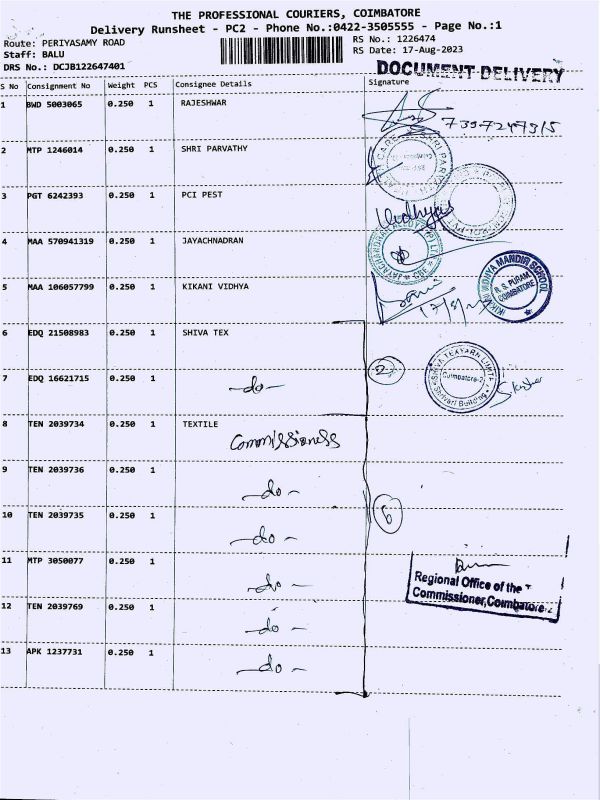 THE PROFESSIONAL COURIERS, COIMBATORE
Delivery Runsheet - PC2 - Phone No.:0422-3505555 - Page No.:1
Route: PERIYASAMY ROAD
RS No.: 1226474
Staff: BALU
RS Date: 17-Aug-2023
DRS No.: DCJB122647401
DOCUMENT DELIVERY
S No Consignment No Weight PCS Consignee Details Signature
1 BWD 5003065 0.250 1 RAJESHWAR
7397247315
2 MTP 1246014 0.250 1 SHRI PARVATHY
3 PGT 6242393 0.250 1 PCI PEST
Vidhya
4 MAA 570941319 0.250 1 JAYACHNADRAN
5 MAA 106057799 0.250 1 KIKANI VIDHYA
KIKANI VIDHYA MANDIR SCHOOL
R. S. PURAM
COIMBATORE
6 EDQ 21508983 0.250 1 SHIVA TEX
SHIVA TEXYARN LIMITED
Coimbatore-2
Shivari Building
7 EDQ 16621715 0.250 1 -do- 2
8 TEN 2039734 0.250 1 TEXTILE
Commissioness
9 TEN 2039736 0.250 1 -do-
10 TEN 2039735 0.250 1 -do- 6
11 MTP 3050077 0.250 1 -do-
Regional Office of the
Commissioner,Coimbatore-2
12 TEN 2039769 0.250 1 -do-
13 APK 1237731 0.250 1 -do-